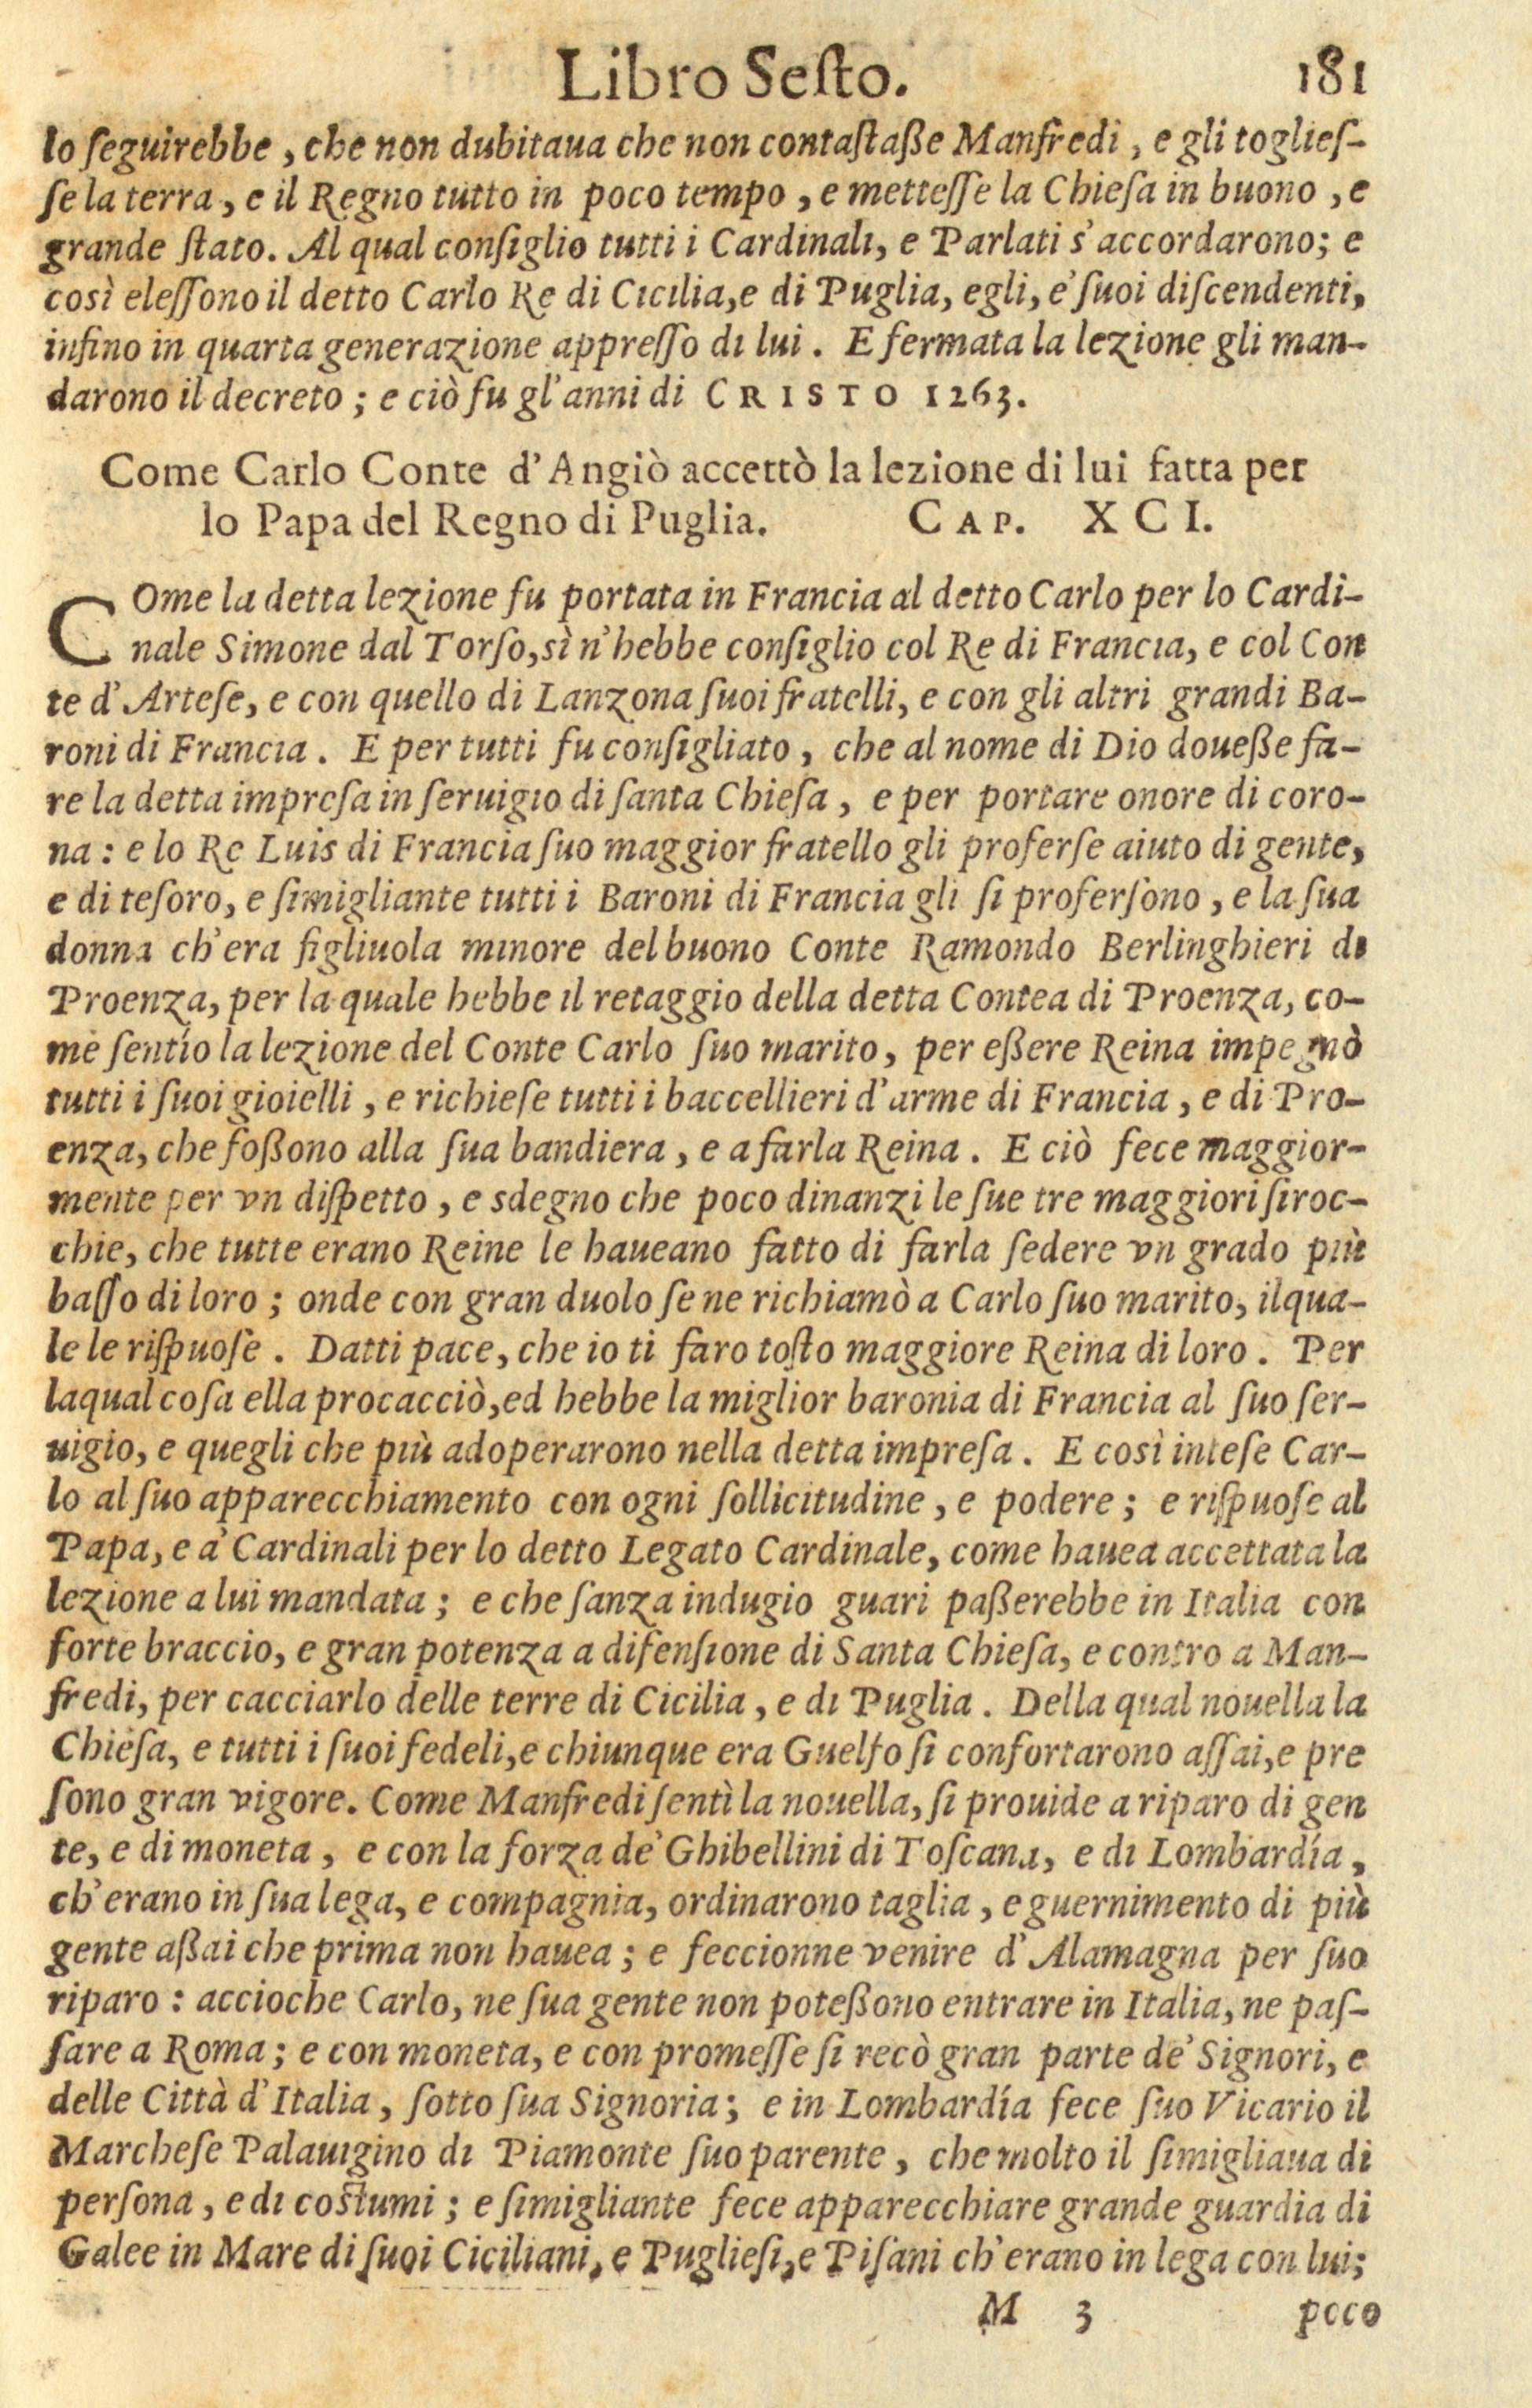 Libro Seſto. 181
lo ſeguirebbe, che non dubitaua che non contaſtaße Manfredi, e gli toglieſ-
ſe la terra, e il Regno tutto in poco tempo, e metteſſe la Chieſa in buono, e
grande ſtato. Al qual conſiglio tutti i Cardinali, e Parlati s'accordarono; e
così eleſſono il detto Carlo Re di Cicilia, e di Puglia, egli, e' ſuoi diſcendenti,
infino in quarta generazione appreſſo di lui. E fermata la lezione gli man-
darono il decreto; e ciò fu gl'anni di CRISTO 1263.
Come Carlo Conte d'Angiò accettò la lezione di lui fatta per
lo Papa del Regno di Puglia. CAP. XCI.
COme la detta lezione fu portata in Francia al detto Carlo per lo Cardi-
nale Simone dal Torſo, sì n'hebbe conſiglio col Re di Francia, e col Con
te d'Arteſe, e con quello di Lanzona ſuoi fratelli, e con gli altri grandi Ba-
roni di Francia. E per tutti fu conſigliato, che al nome di Dio doueße fa-
re la detta impreſa in ſeruigio di ſanta Chieſa, e per portare onore di coro-
na: e lo Re Luis di Francia ſuo maggior fratello gli proferſe aiuto di gente,
e di teſoro, e ſimigliante tutti i Baroni di Francia gli ſi proferſono, e la ſua
donna ch'era figliuola minore del buono Conte Ramondo Berlinghieri di
Proenza, per la quale hebbe il retaggio della detta Contea di Proenza, co-
me ſentío la lezione del Conte Carlo ſuo marito, per eßere Reina impegnò
tutti i ſuoi gioielli, e richieſe tutti i baccellieri d'arme di Francia, e di Pro-
enza, che foßono alla ſua bandiera, e a farla Reina. E ciò fece maggior-
mente per vn diſpetto, e sdegno che poco dinanzi le ſue tre maggiori ſiroc-
chie, che tutte erano Reine le haueano fatto di farla ſedere vn grado più
baſſo di loro; onde con gran duolo ſe ne richiamò a Carlo ſuo marito, ilqua-
le le riſpuoſe. Datti pace, che io ti faro toſto maggiore Reina di loro. Per
laqual coſa ella procacciò, ed hebbe la miglior baronia di Francia al ſuo ſer-
uigio, e quegli che più adoperarono nella detta impreſa. E così inteſe Car-
lo al ſuo apparecchiamento con ogni ſollicitudine, e podere; e riſpuoſe al
Papa, e a' Cardinali per lo detto Legato Cardinale, come hauea accettata la
lezione a lui mandata; e che ſanza indugio guari paßerebbe in Italia con
forte braccio, e gran potenza a difenſione di Santa Chieſa, e contro a Man-
fredi, per cacciarlo delle terre di Cicilia, e di Puglia. Della qual nouella la
Chieſa, e tutti i ſuoi fedeli, e chiunque era Guelfo ſi confortarono aſſai, e pre
ſono gran vigore. Come Manfredi ſentì la nouella, ſi prouide a riparo di gen
te, e di moneta, e con la forza de' Ghibellini di Toſcana, e di Lombardía,
ch'erano in ſua lega, e compagnia, ordinarono taglia, e guernimento di più
gente aßai che prima non hauea; e feccionne venire d'Alamagna per ſuo
riparo: accioche Carlo, ne ſua gente non poteßono entrare in Italia, ne paſ-
ſare a Roma; e con moneta, e con promeſſe ſi recò gran parte de' Signori, e
delle Città d'Italia, ſotto ſua Signoria; e in Lombardía fece ſuo Vicario il
Marcheſe Palauigino di Piamonte ſuo parente, che molto il ſimigliaua di
perſona, e di coſtumi; e ſimigliante fece apparecchiare grande guardia di
Galee in Mare di ſuoi Ciciliani, e Puglieſi, e Piſani ch'erano in lega con lui;
M 3 poco